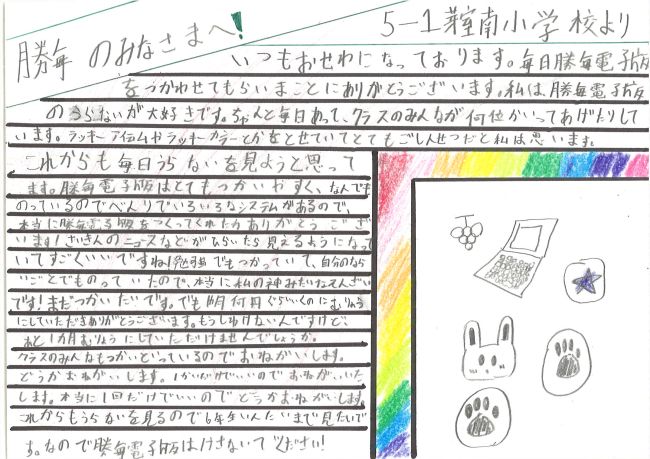 勝毎 のみなさまへ!
5-1 南小学校より
いつもおせわになっております。毎日勝毎電子版
をつかわせてもらいまことにありがとうございます。私は勝毎電子版
のうらないが大好きです。ちゃんと毎日あって、クラスのみんなが何位かいってあげたりして
います。ラッキーアイテムやラッキーカラーとかをとせていてとてもごしんせつだと私は思います。
これからも毎日うらないを見ようと思って
ます。勝毎電子版はとてもつかいやすく、なんでも
のっているのでべんりでいろいろなシステムがあるので、
本当に勝毎電子版をつくってくれたかありがとうござ
います!さいきんのニュースなどがひらいたら見えるようになって
いてすごくいいですね!勉強でもつかっていて、自分のなら
いごとでものっていたので、本当に私の神みたいなそんざい
です!まだつかいたいです。でも1月何円ぐらいくのにむりょう
にしていただきありがとうございます。もうしわけないんですけど、
あと1カ月むりょうにしていただけませんでしょうか。
クラスのみんなもつかいといっているのでおねがいします。
どうかおねがいします。1かいだけでいいのでおねがいいた
します。本当に1回だけでいいのでどうかおねがいします。
これからもうらないを見るので6年生いんたいまで見たいで
す。なので勝毎電子版はけさないでください!